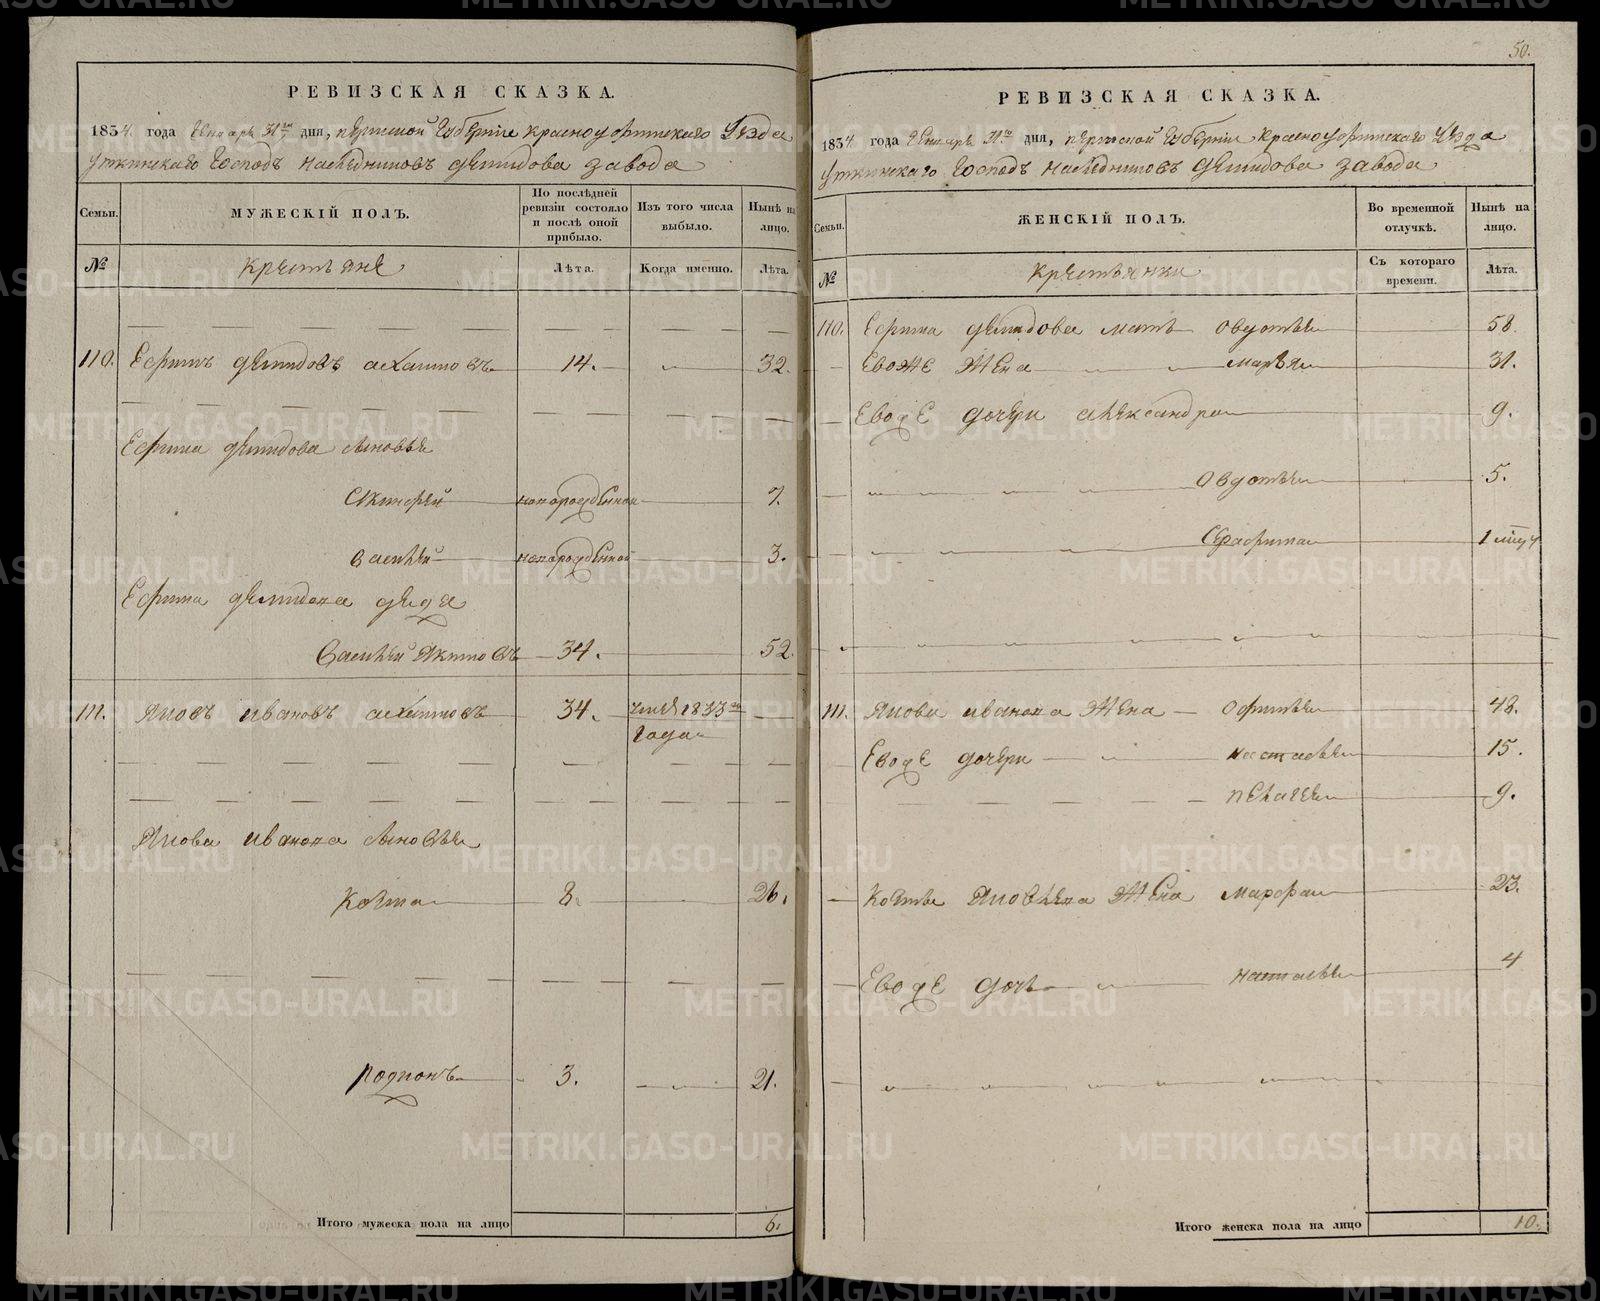 РЕВИЗСКАЯ СКАЗКА.
1834. года Генваря 31го дня, пермской Губернiи красноуфимскаго Уезда
Уткинскаго Господъ наследниковъ демидова завода
Семьи.
МУЖЕСКІЙ ПОЛЪ.
По послѣдней ревизіи состояло и послѣ оной прибыло.
Изъ того числа выбыло.
Нынѣ на лицо.
№
крестьяне
Лѣта.
Когда именно.
Лѣта.
110. Ефимъ демидовъ 14. 32.
Ефима демидова сыновья
новорожденной 7.
василей новорожденной 3.
Ефима демидова дядя
василей 34. 52.
111. Яковъ ивановъ 34. 1833го года
Якова иванова сыновья
козма 8. 26.
родионъ 3. 21.
Итого мужеска пола на лицо 6.
50.
РЕВИЗСКАЯ СКАЗКА.
1834 года Генваря 31го дня, пермской Губернiи красноуфимскаго Уезда
Уткинскаго Господъ наследниковъ демидова завода
Семьи.
ЖЕНСКІЙ ПОЛЪ.
Во временной отлучкѣ.
Нынѣ на лицо.
№
крестьянки
Съ котораго времени.
Лѣта.
110. Ефима демидова мать овдотья 58.
Евоже жена марья 31.
Евоже дочери александра 9.
овдотья 5.
Серафима 1
111. Якова иванова жена офимья 48.
Евоже дочери настасья 15.
пелагея 9.
козмы яковлева жена марфа 23.
Евоже дочь 4
Итого женска пола на лицо 10.
METRIKI.GASO-URAL.RU